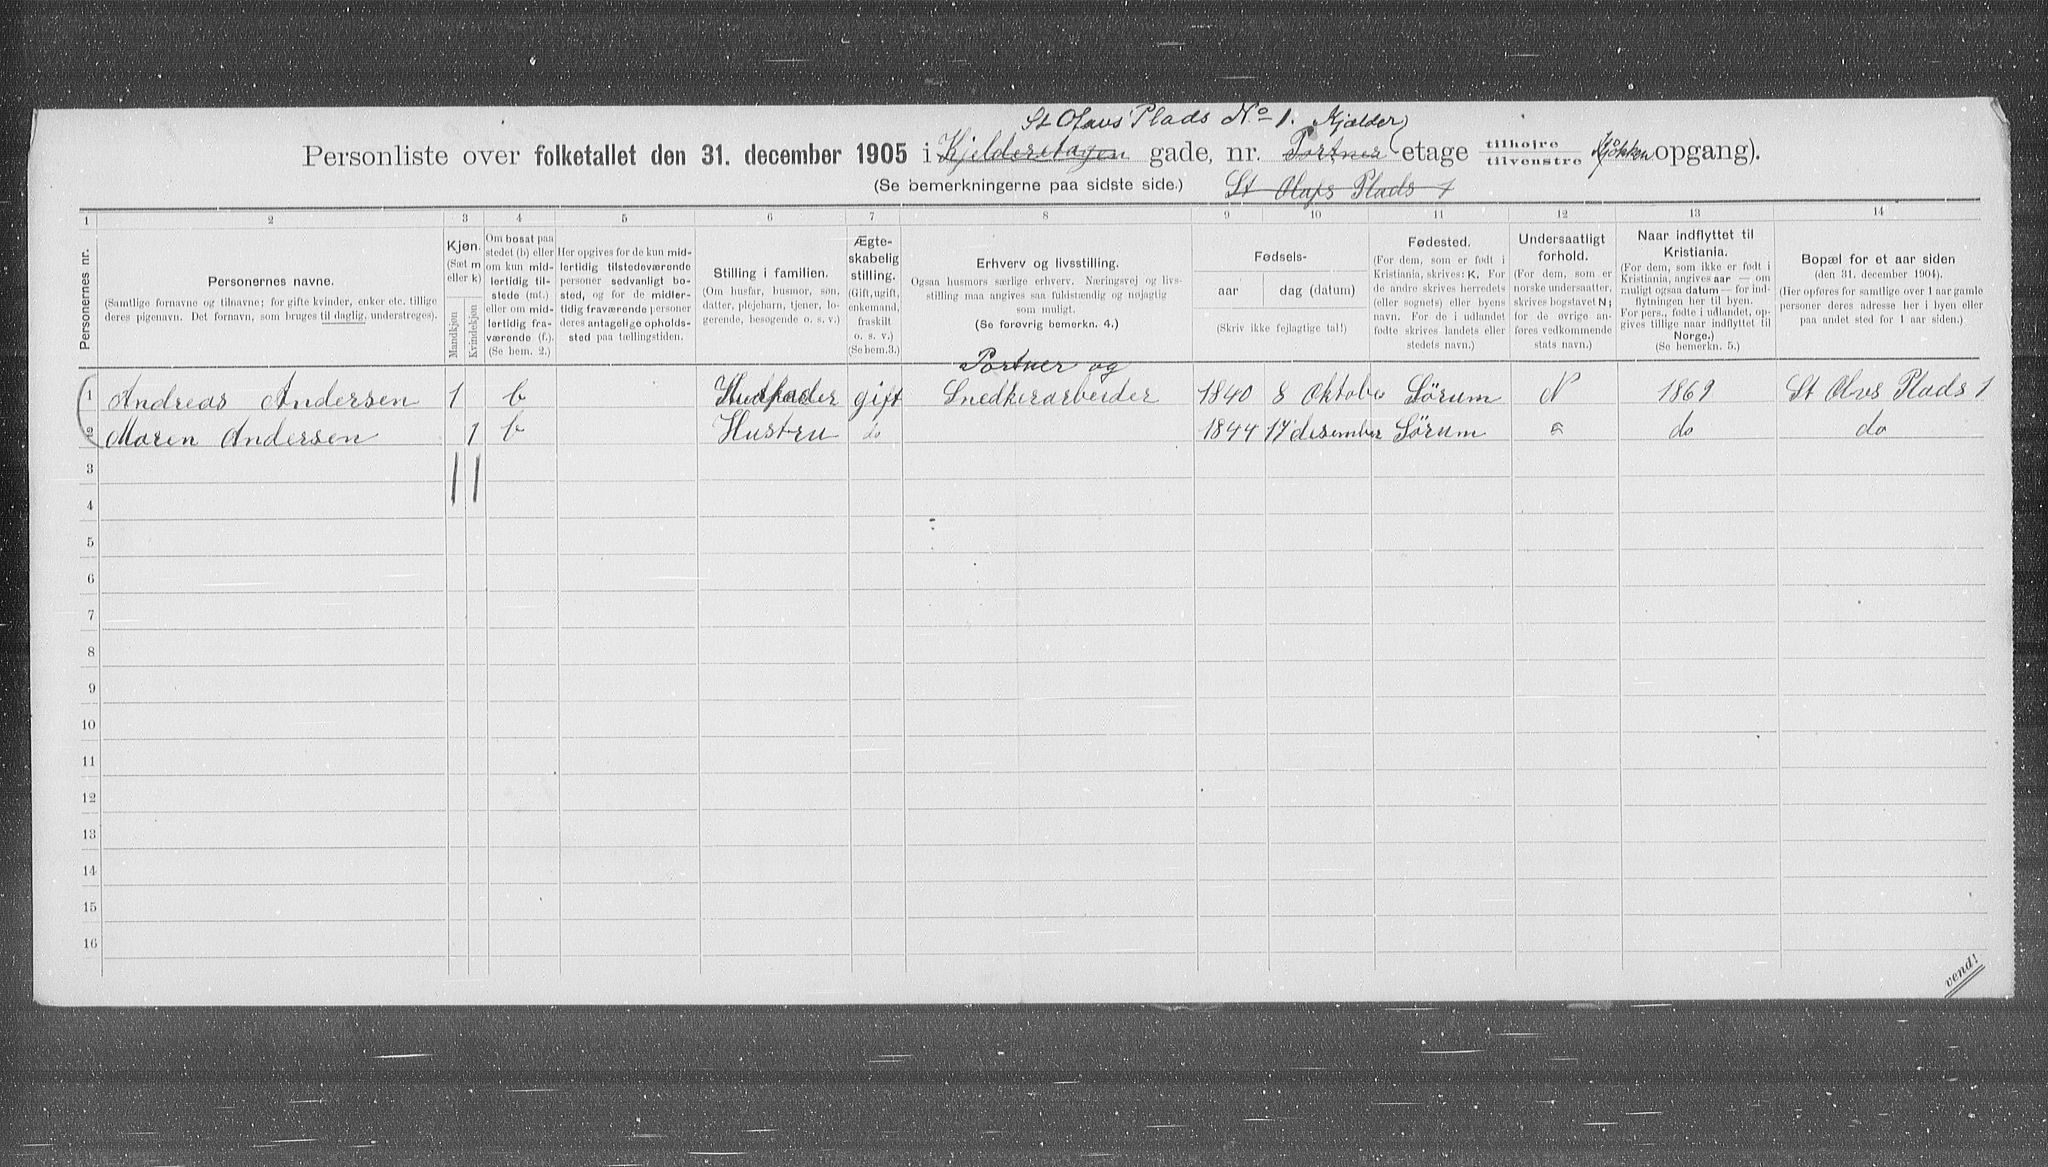 St Olavs Plads No 1. Kjælder
Personliste over folketallet den 31. december 1905 i Kjelderetagen gade, nr. Portner etage tilhøire tilvenstre Kjøkken opgang).
(Se bemerkningerne paa sidste side.) St Olafs Plads 1
1 2 3 4 5 6 7 8 9 10 11 12 13 14
Personernes nr.
Personernes navne.
(Samtlige fornavne og tilnavne; for gifte kvinder, enker etc. tillige
deres pigenavn. Det fornavn, som bruges til daglig, understreges).
Kjøn.
(Sæt m
eller k)
Mandkjøn
Kvindekjøn
Om bosat paa
stedet (b) eller
om kun mid-
lertidig til-
stede (mt.)
eller om mid-
lertidig fra-
værende (f.).
(Se bem. 2.)
Her opgives for de kun mid-
lertidig tilstedeværende
personer sedvanligt bo-
sted, og for de midler-
tidig fraværende personer
deres antagelige opholds-
sted paa tællingstiden.
Stilling i familien.
(Om husfar, husmor, søn,
datter, plejebarn, tjener, lo-
gerende, besøgende o. s. v.)
Ægte-
skabelig
stilling.
(Gift, ugift,
enkemand,
fraskilt
o. s. v.)
(Se bem.3.)
Erhverv og livsstilling.
Ogsaa husmors særlige erhverv. Næringsvej og livs-
stilling maa angives saa fuldstændig og nøjagtig
som muligt.
(Se forøvrig bemerkn. 4.)
Fødsels-
aar
dag (datum)
(Skriv ikke fejlagtige tal!)
Fødested.
(For dem, som er født i
Kristiania, skrives: K. For
de andre skrives herredets
(eller sognets) eller byens
navn. For de i udlandet
fødte skrives landets eller
stedets navn.)
Undersaatligt
forhold.
(For dem, som er
norske undersaatter,
skrives bogstavet N;
for de øvrige an-
føres vedkommende
stats navn.)
Naar indflyttet til
Kristiania.
(For dem, som ikke er født i
Kristiania, angives aar — om
muligt ogsaa datum — for ind-
flytningen her til byen.
For pers., fødte i udlandet, op-
gives tillige naar indflyttet til
Norge.)
(Se bemerkn. 5.)
Bopæl for et aar siden
(den 31. december 1904).
(Her opføres for samtlige over 1 aar gamle
personer deres adresse her i byen eller
paa andet sted for 1 aar siden.)
Portner og
1 Andreas Andersen 1 b Husfader gift Snedkerarbeider 1840 8 Oktober Sørum N 1869 St Olvs Plads 1
2 Maren Andersen 1 b Hustru do 1844 17 desember Sørum do do
3
4
5
6
7
8
9
10
11
12
13
14
15
16
vend!